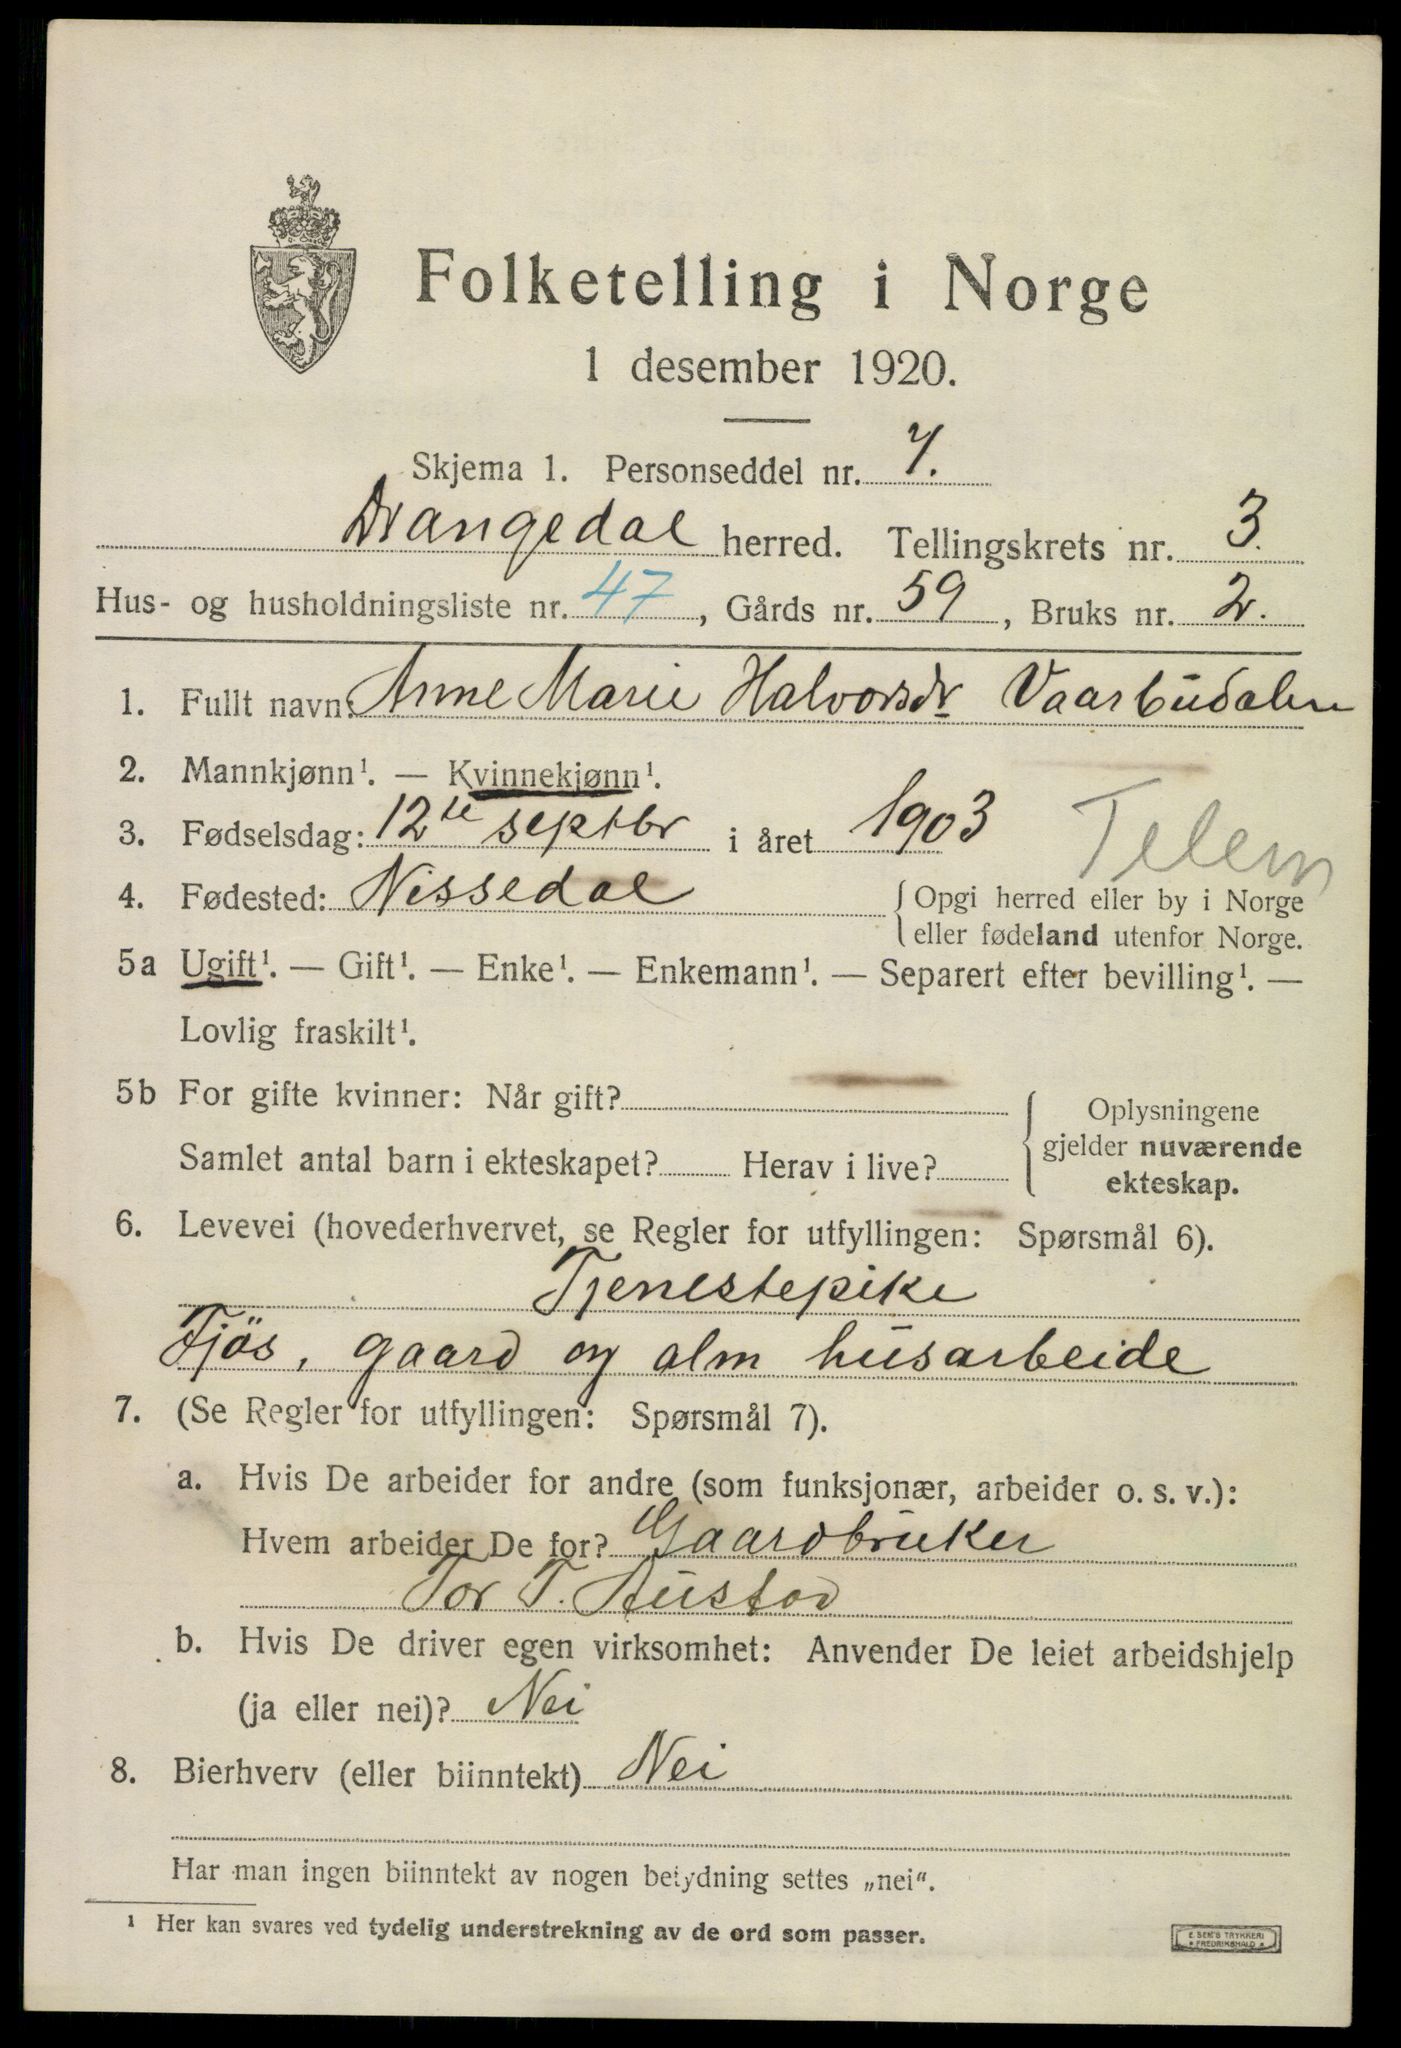 Folketelling i Norge
1 desember 1920.
Skjema 1. Personseddel nr. 7.
Drangedal herred. Tellingskrets nr. 3.
Hus- og husholdningsliste nr. 47, Gårds nr. 59, Bruks nr. 2.
1. Fullt navn: Anne Marie Halvorsdr Vaarbudalen
2. Mannkjønn¹. — Kvinnekjønn¹.
3. Fødselsdag: 12te septbr i året 1903
Telem
4. Fødested: Nissedal { Opgi herred eller by i Norge
eller fødeland utenfor Norge.
5a Ugift¹. — Gift¹. — Enke¹. — Enkemann¹. — Separert efter bevilling¹. —
Lovlig fraskilt¹.
5b For gifte kvinner: Når gift? { Oplysningene
gjelder nuværende
Samlet antal barn i ekteskapet? Herav i live?
ekteskap.
6. Levevei (hovederhvervet, se Regler for utfyllingen: Spørsmål 6).
Tjenestepike
Fjös, gaard og alm husarbeide
7. (Se Regler for utfyllingen: Spørsmål 7).
a. Hvis De arbeider for andre (som funksjonær, arbeider o. s. v.):
Hvem arbeider De for? Gaardbruker
Tor T. Austad
b. Hvis De driver egen virksomhet: Anvender De leiet arbeidshjelp
(ja eller nei)? Nei
8. Bierhverv (eller biinntekt) Nei
Har man ingen biinntekt av nogen betydning settes „nei“.
¹ Her kan svares ved tydelig understrekning av de ord som passer.
E. SEM'S TRYKKERI
FREDRIKSHALD